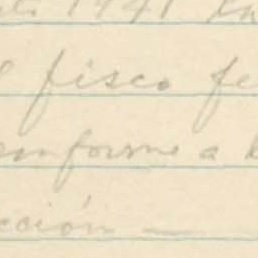 1941
fisco fe
conforme a l
cción —